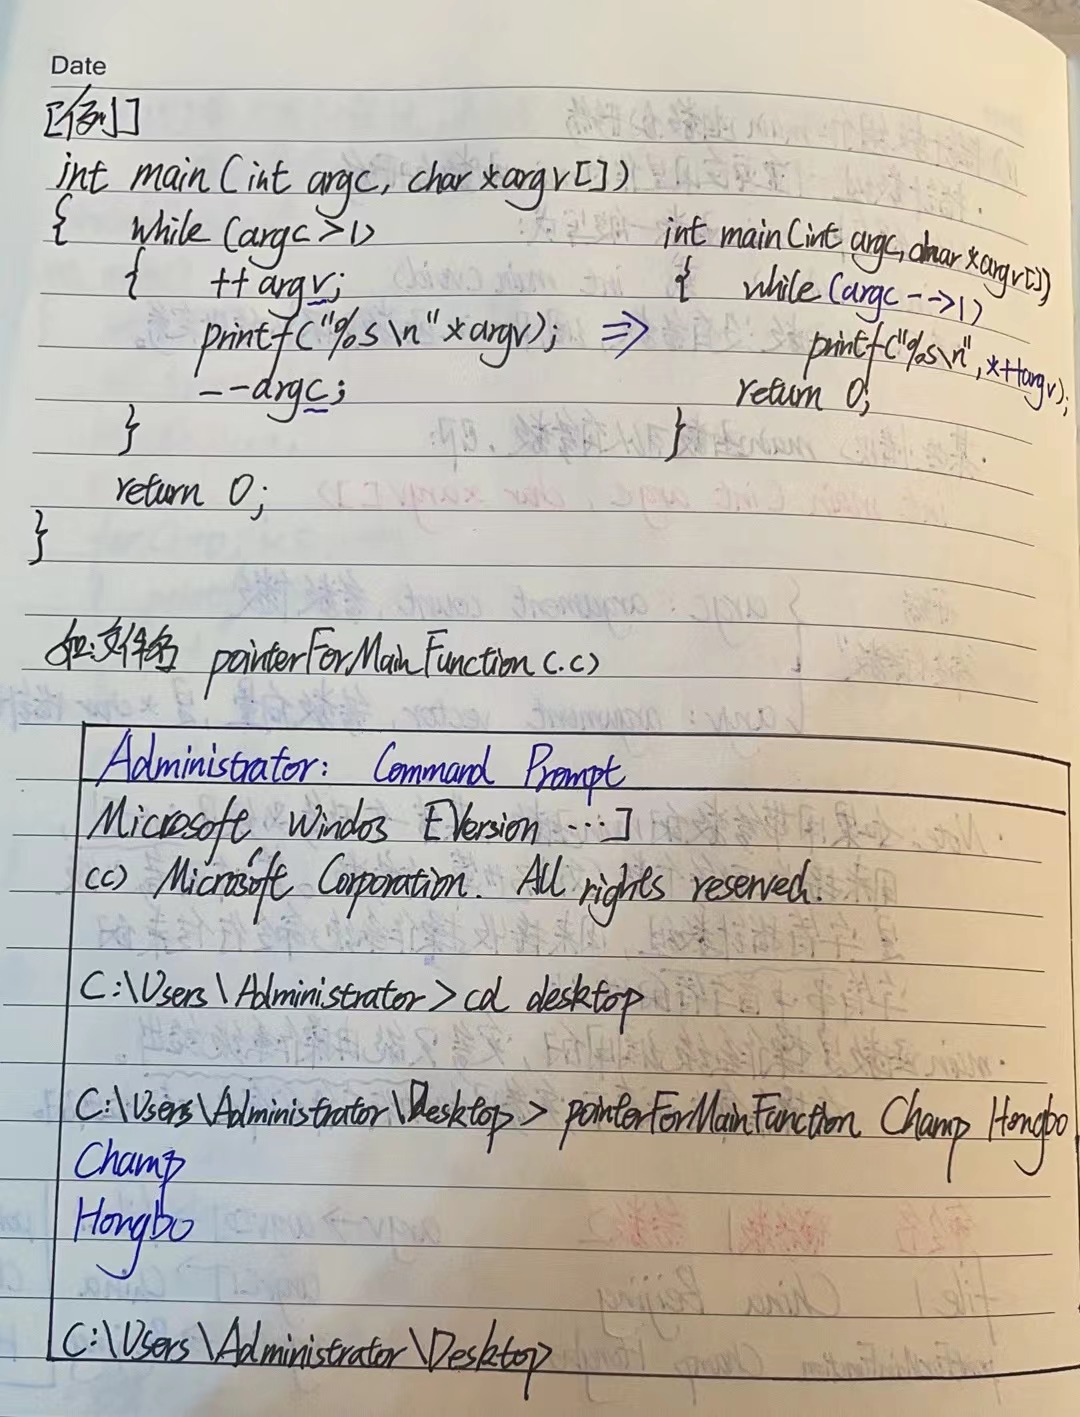 Date
[例]
int main (int argc, char *argv[])
{ while (argc>1)
{ ++argv;
printf("%s\n" *argv); =>
--argc;
}
return 0;
}
int main (int argc, char *argv[])
{ while (argc-->1)
printf("%s\n", *++argv);
return 0;
}
如:文件名 pointerForMainFunction(.c)
Administrator: Command Prompt
Microsoft Windos [Version ...]
(c) Microsoft Corporation. All rights reserved.
C:\Users\Administrator>cd desktop
C:\Users\Administrator\Desktop> pointerForMainFunction Champ Hongbo
Champ
Hongbo
C:\Users\Administrator\Desktop